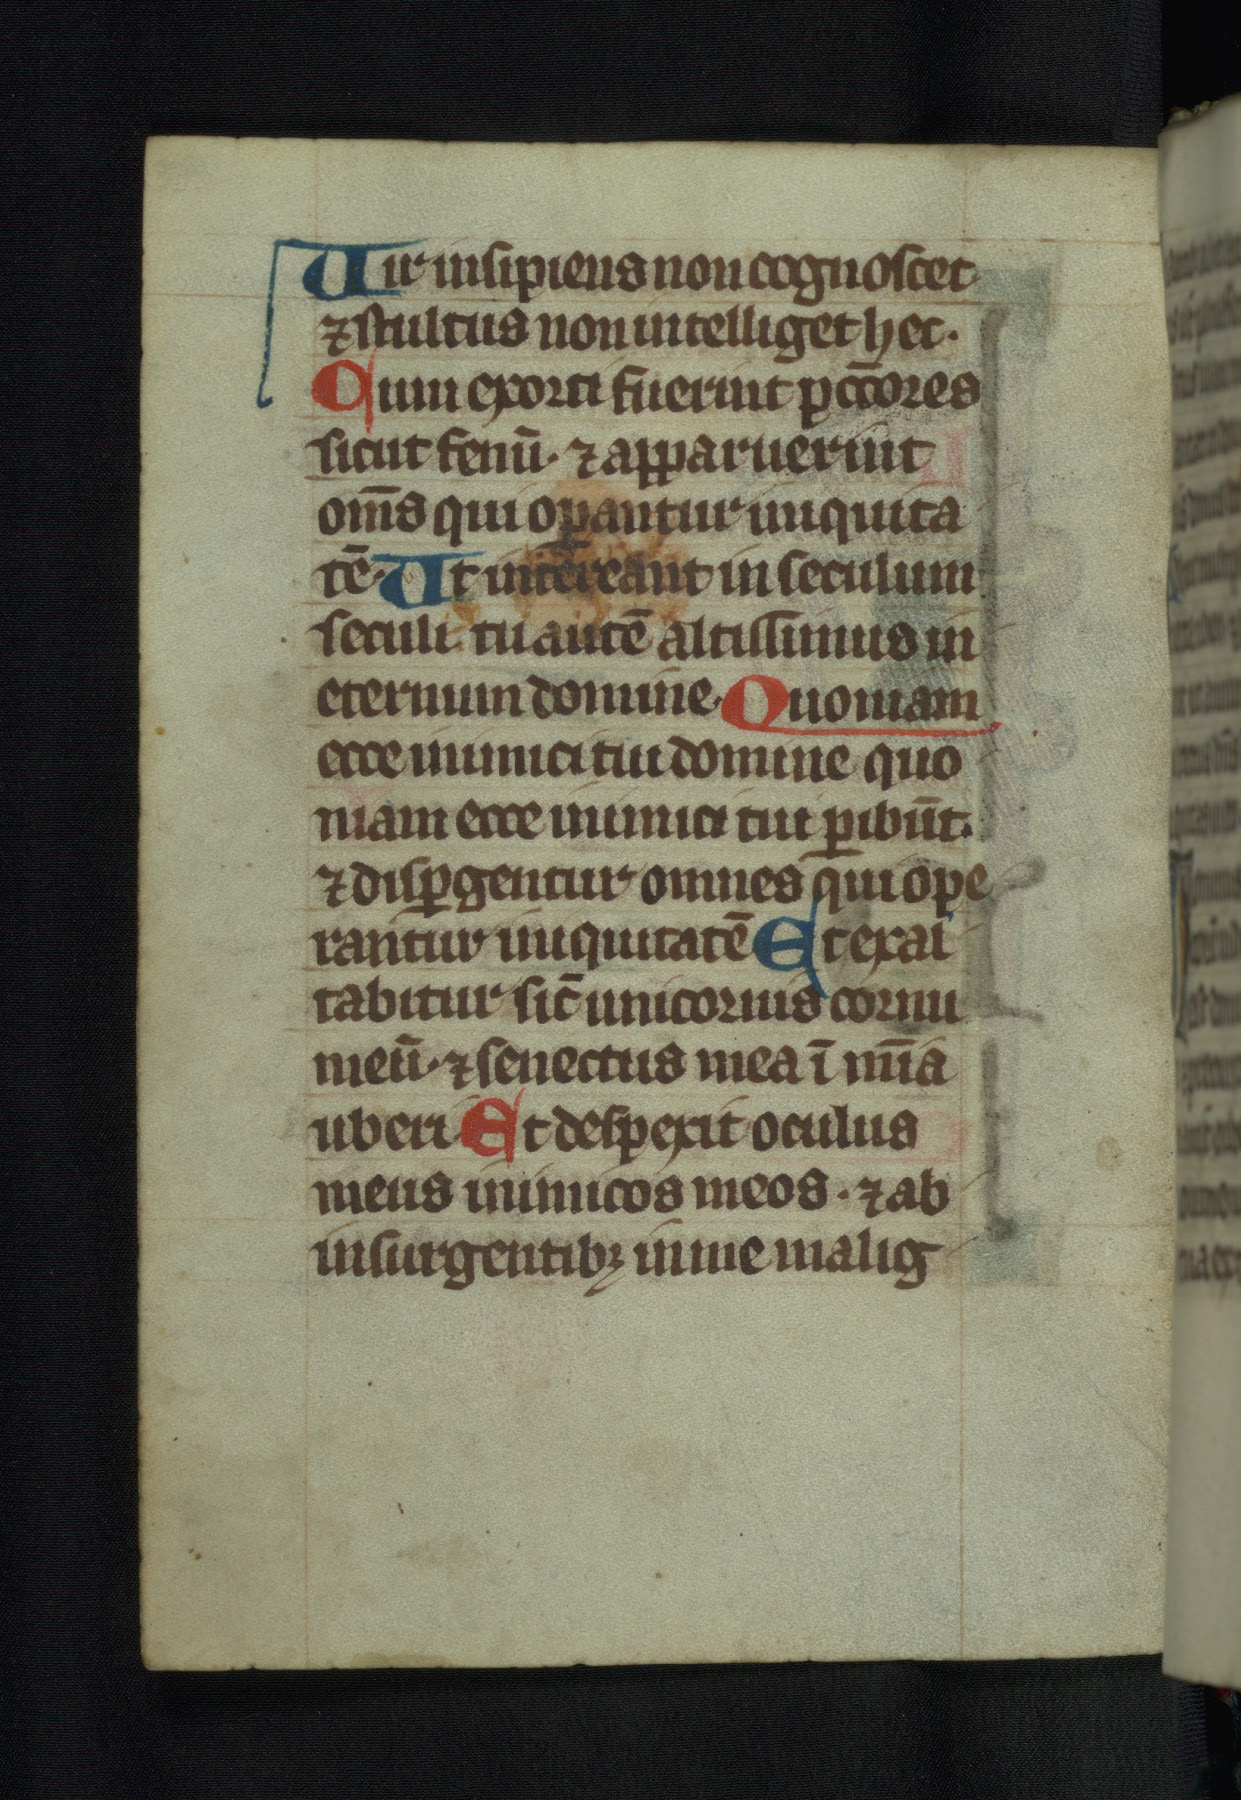 Uir insipiens non cognoscet
⁊ stultus non intelliget hec.
Cum exorti fuerint pcc̄ores
sicut fenū. ⁊ apparuerint
om̄s qui oꝑantur iniquita
tē. Ut intereant in seculum
seculi. tu autē altissimus in
eternum domine. Quoniam
ecce inimici tui domine quo
niam ecce inimici tui ꝑibūt.
⁊ disꝑgentur omnes qui ope
rantur iniquitatē Et exal
tabitur sic̄ unicornis cornu
meū. ⁊ senectus mea ī mīa
uberi. Et despexit oculus
meus inimicos meos. ⁊ ab
insurgentibꝫ in me malig